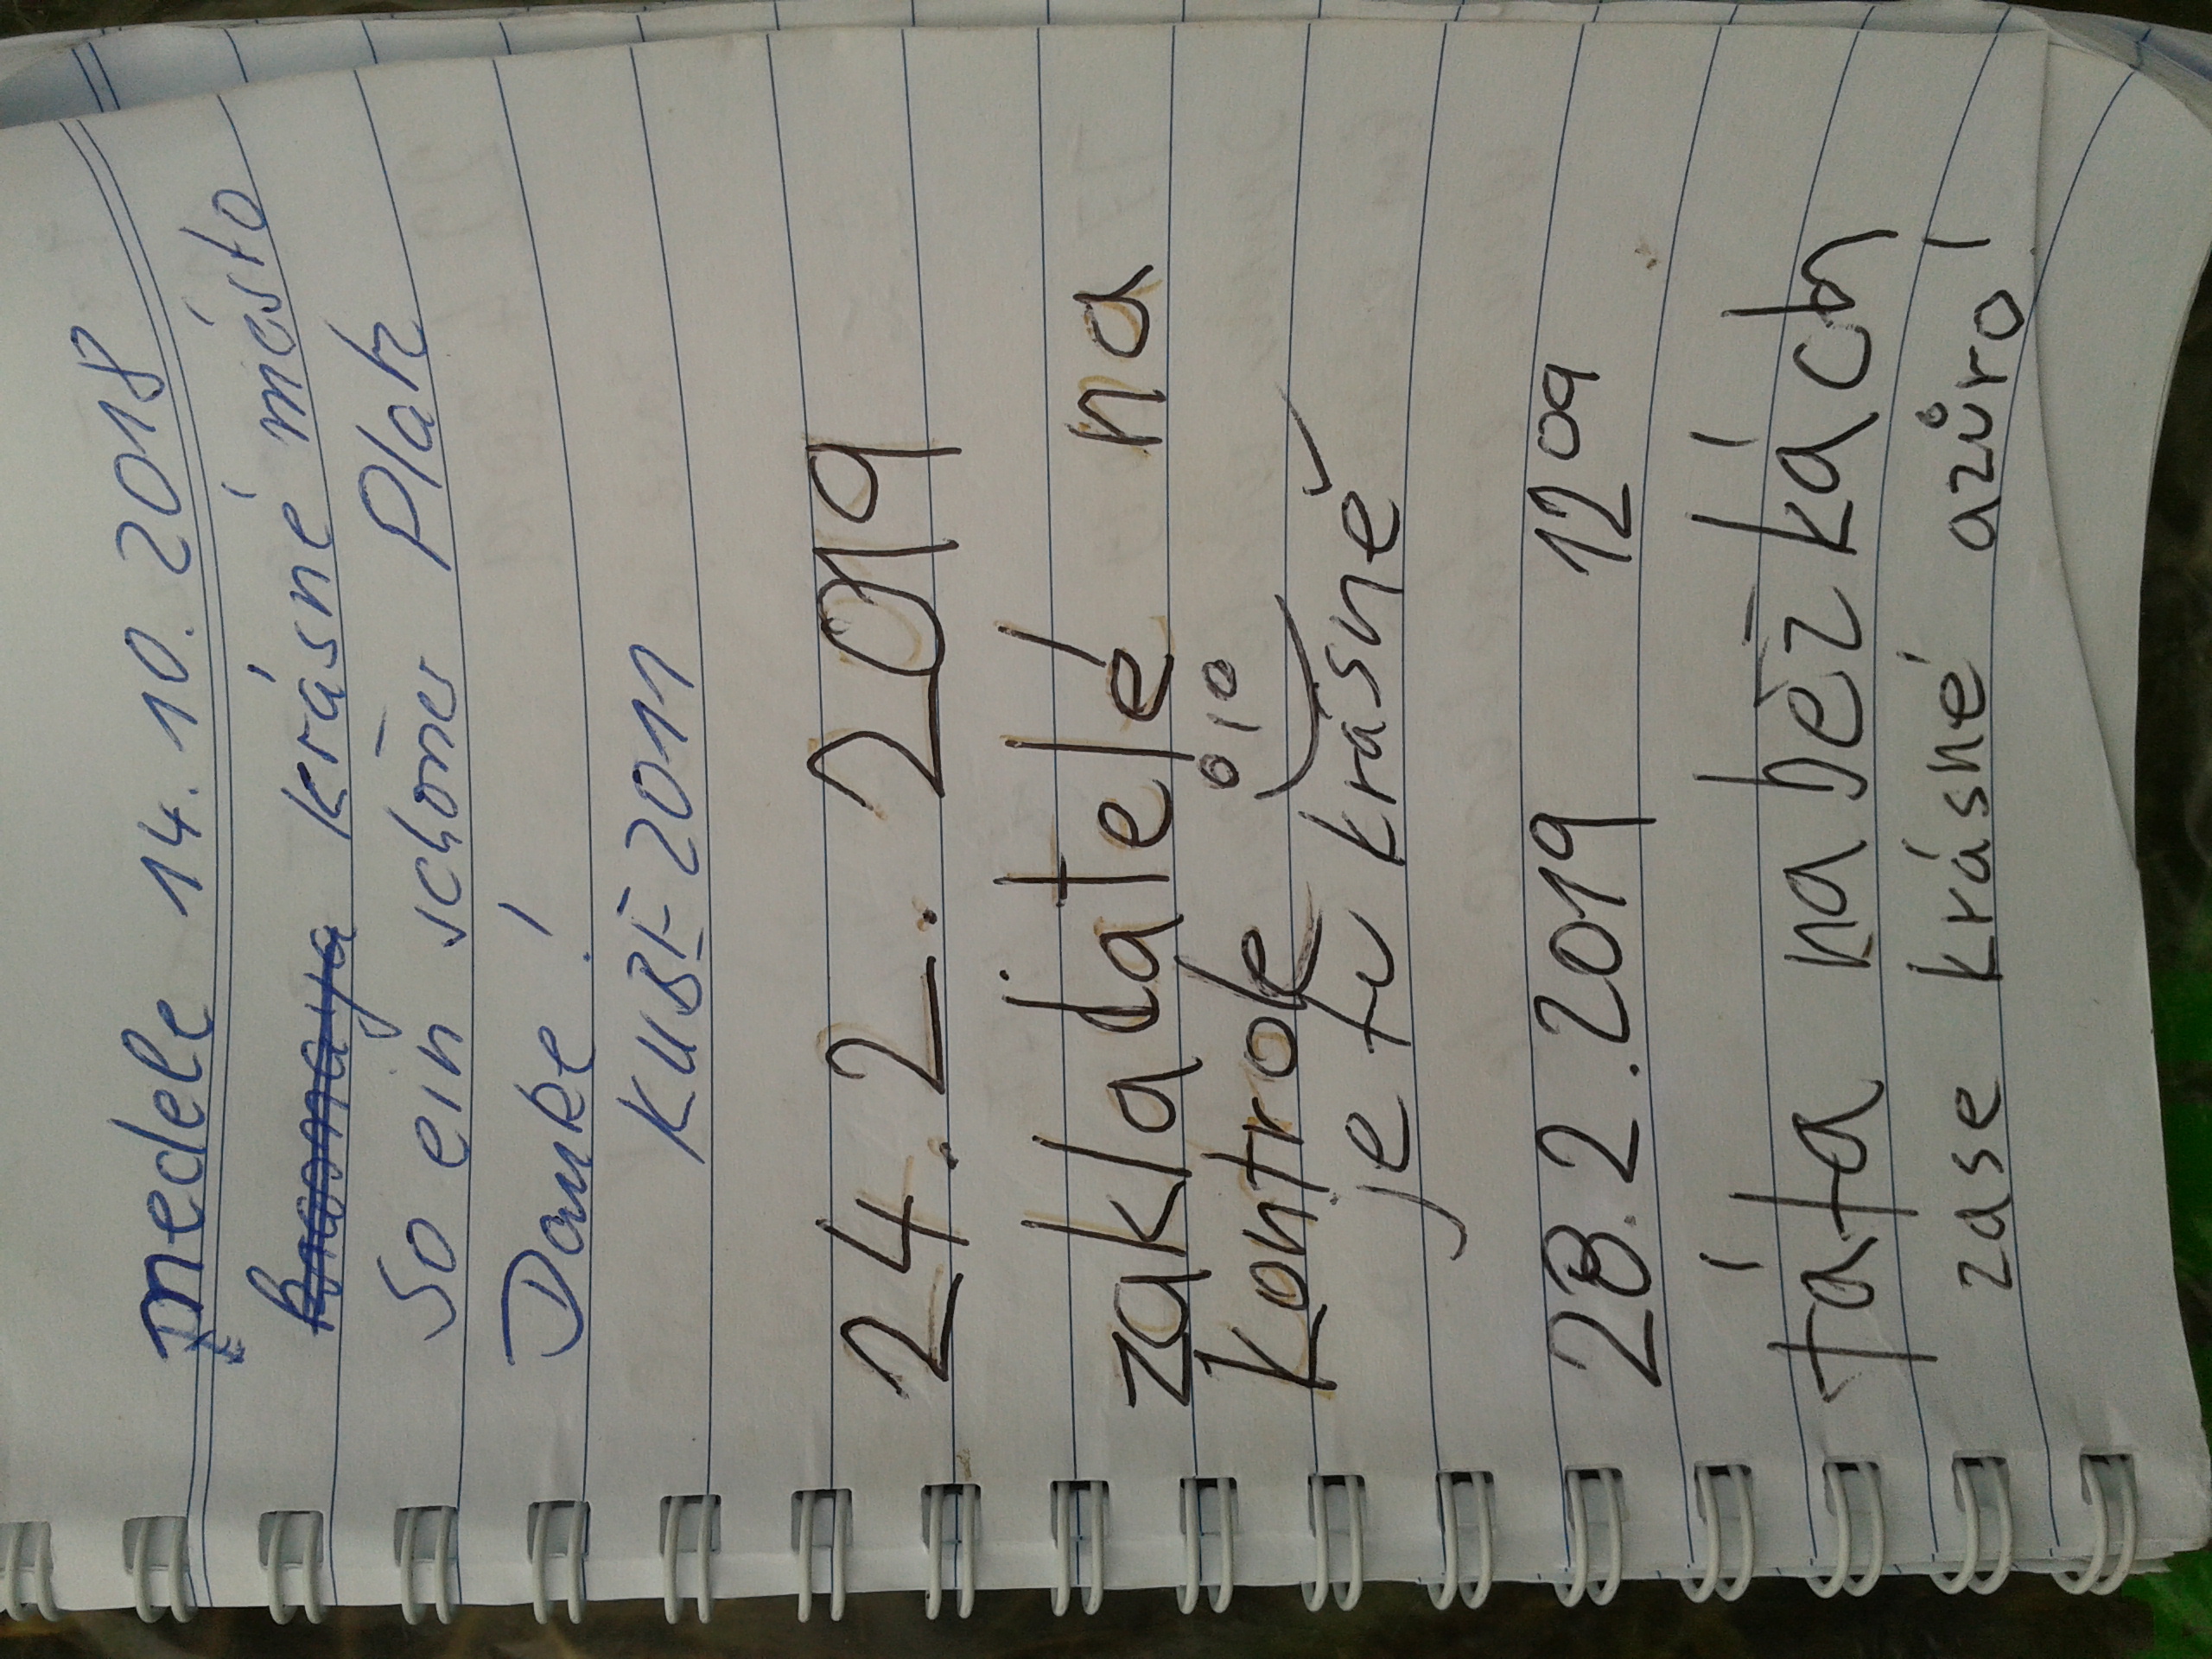 nedele 14. 10. 2018
krásné mésto
So ein schöner Plak
Danke!
KUBE 2011
24. 2. 2019
zakladatelé na
kontrole
je tu krásně
28. 2. 2019 12 09
táta na bežkách
zase krásné azůro!